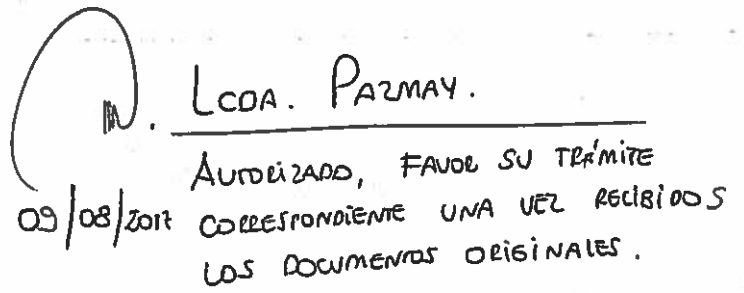 LCDA. PAZMAY.
AUTORIZADO, FAVOR SU TRÁMITE
09/08/2017 CORRESPONDIENTE UNA VEZ RECIBIDOS
LOS DOCUMENTOS ORIGINALES.